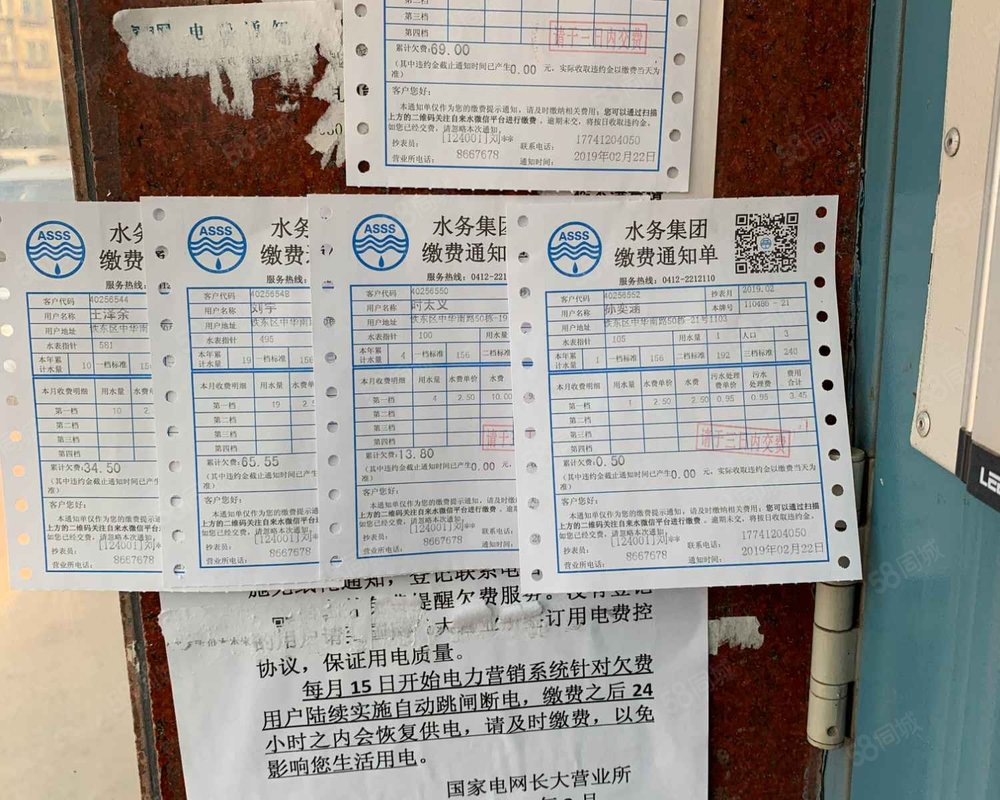 电
第三档
第四档
请于三日内交费
累计欠费:69.00
(其中违约金截止通知时间已产生0.00 元,实际收取违约金以缴费当天为
准)
客户您好:
本通知单仅作为您的缴费提示通知,请及时缴纳相关费用;您可以通过扫描
上方的二维码关注自来水微信平台进行缴费。逾期未交,将按日收取违约金。
如您已经交费,请忽略本次通知。
抄表员: [124001]刘** 联系电话: 17741204050
营业所电话: 8667678 通知时间: 2019年02月22日
ASSS
水务
缴费
服务热线:
客户代码 40256544
用户名称
用户地址 铁东区中华南
水表指针 581
本年累计水量 10 一档标准 156
本月收费明细 用水量 水费
第一档 10 2.
第二档
第三档
第四档
累计欠费:34.50
(其中违约金截止通知时间已产生
准)
客户您好:
本通知单仅作为您的缴费提示通
上方的二维码关注自来水微信平台进
如您已经交费,请忽略本次通知。
抄表员: [124001]刘
营业所电话: 8667678
ASSS
水务
缴费
服务热线:
客户代码 40256548
用户名称 刘宇
用户地址 铁东区中华南
水表指针 495
本年累计水量 19 一档标准 156
本月收费明细 用水量 水费
第一档 19 2.5
第二档
第三档
第四档
累计欠费:65.55
(其中违约金截止通知时间已产生
准)
客户您好:
本通知单仅作为您的缴费提示通
上方的二维码关注自来水微信平台进
如您已经交费,请忽略本次通知。
抄表员: [124001]刘
营业所电话: 8667678
ASSS
水务集团
缴费通知
服务热线:0412-221
客户代码 40256550
用户名称 太义
用户地址 铁东区中华南路50栋-19
水表指针 100 用水量
本年累计水量 4 一档标准 156 二档标
本月收费明细 用水量 水费单价 水费
第一档 4 2.50 10.00
第二档
第三档
第四档
请于
累计欠费:13.80
(其中违约金截止通知时间已产生0.00 元,
准)
客户您好:
本通知单仅作为您的缴费提示通知,请及时缴
上方的二维码关注自来水微信平台进行缴费
如您已经交费,请忽略本次通知。
抄表员: [124001]刘** 联系电话:
营业所电话: 8667678 通知时间:
ASSS
水务集团
缴费通知单
服务热线:0412-2212110
客户代码 40256552 抄表月 2019.02
用户名称 孙奕涵 本牌号 110466-21
用户地址 铁东区中华南路50栋-21号1103
水表指针 105 用水量 1 人口 3
本年累计水量 1 一档标准 156 二档标准 192 三档标准 240
本月收费明细 用水量 水费单价 水费 污水处理费单价 污水处理费 费用合计
第一档 1 2.50 2.50 0.95 0.95 3.45
第二档
第三档
第四档
请于三日内交费
累计欠费:0.50
(其中违约金截止通知时间已产生0.00 元,实际收取违约金以缴费当天为
准)
客户您好:
本通知单仅作为您的缴费提示通知,请及时缴纳相关费用;您可以通过扫描
上方的二维码关注自来水微信平台进行缴费。逾期未交,将按日收取违约金。
如您已经交费,请忽略本次通知。
抄表员: [124001]刘** 联系电话: 17741204050
营业所电话: 8667678 通知时间: 2019年02月22日
提醒欠费服务。没有登记
的用户请 订用电费控
协议,保证用电质量。
每月 15 日开始电力营销系统针对欠费
用户陆续实施自动跳闸断电,缴费之后 24
小时之内会恢复供电,请及时缴费,以免
影响您生活用电。
国家电网长大营业所
58同城